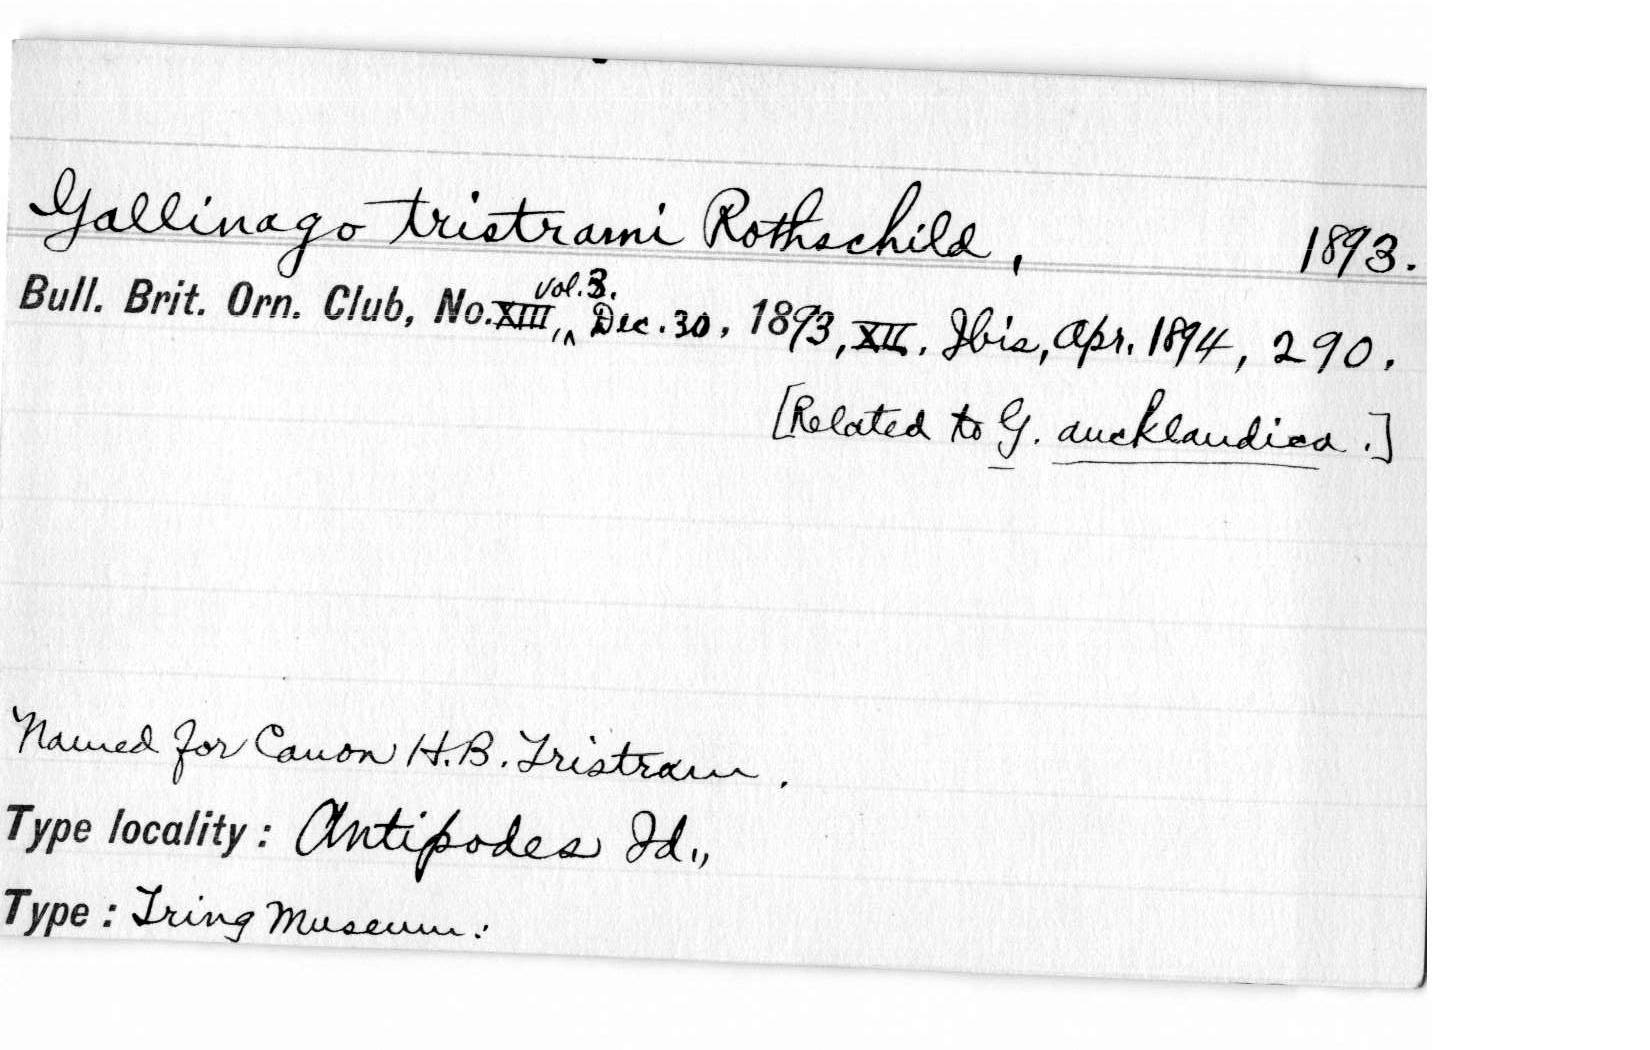 Gallinago tristrami Rothschild, 1893.
vol. 3.
Bull. Brit. Orn. Club, No. XIII, ^ Dec. 30, 1893, XII. Ibis, Apr. 1894, 290.
[Related to G. aucklandica.]
Named for Canon H.B. Tristram.
Type locality: Antipodes Id.,
Type: Tring Museum: